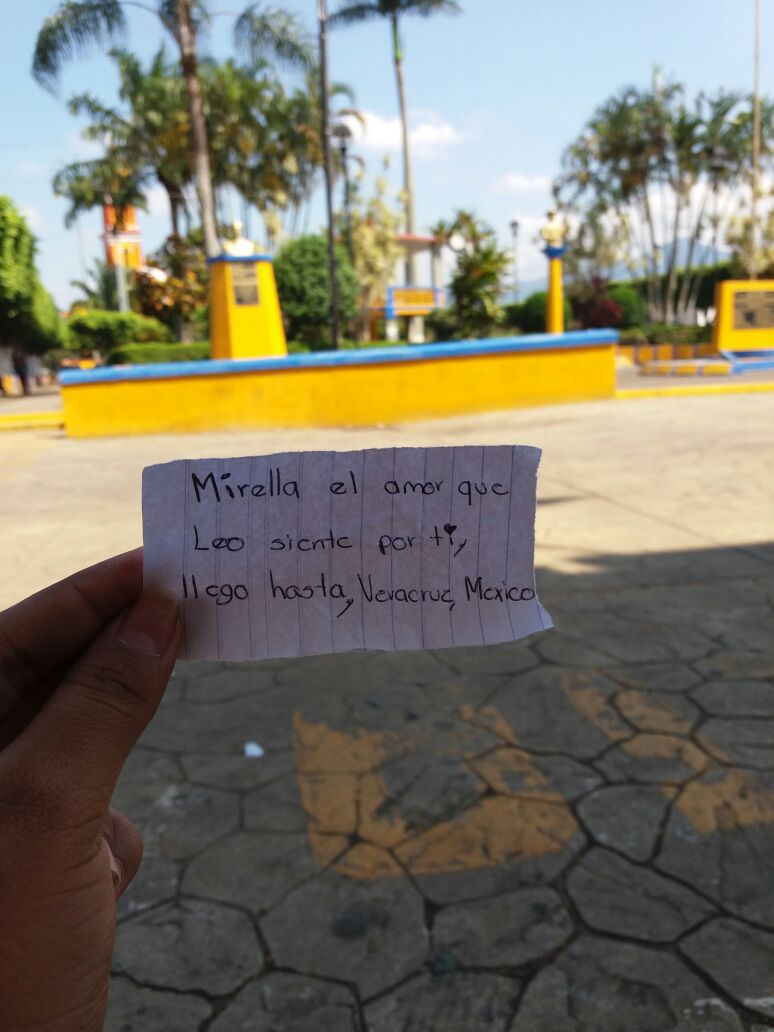 Mirella el amor que
Leo siente por ti,
llego hasta, Veracruz, Mexico